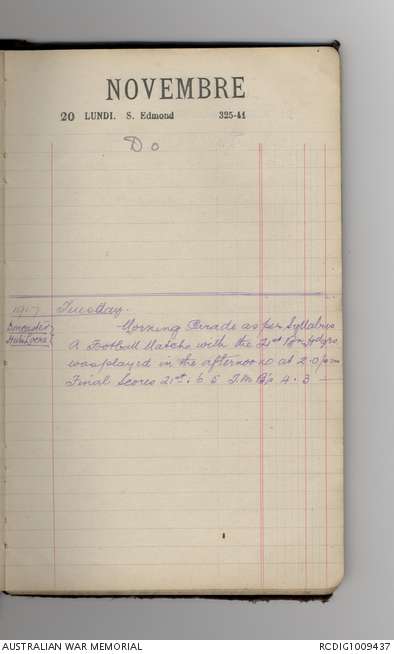 NOVEMBRE
20 LUNDI. S. Edmond 325-41
Do
1917 Tuesday.
Morning Parade as per Syllabus
A Football Match with the 21st Bn Hdqrs
was played in the afternoon at 2.0 pm
Final Scores 21st. 6 5 T.M.B's 4. 3
AUSTRALIAN WAR MEMORIAL RCDIG1009437